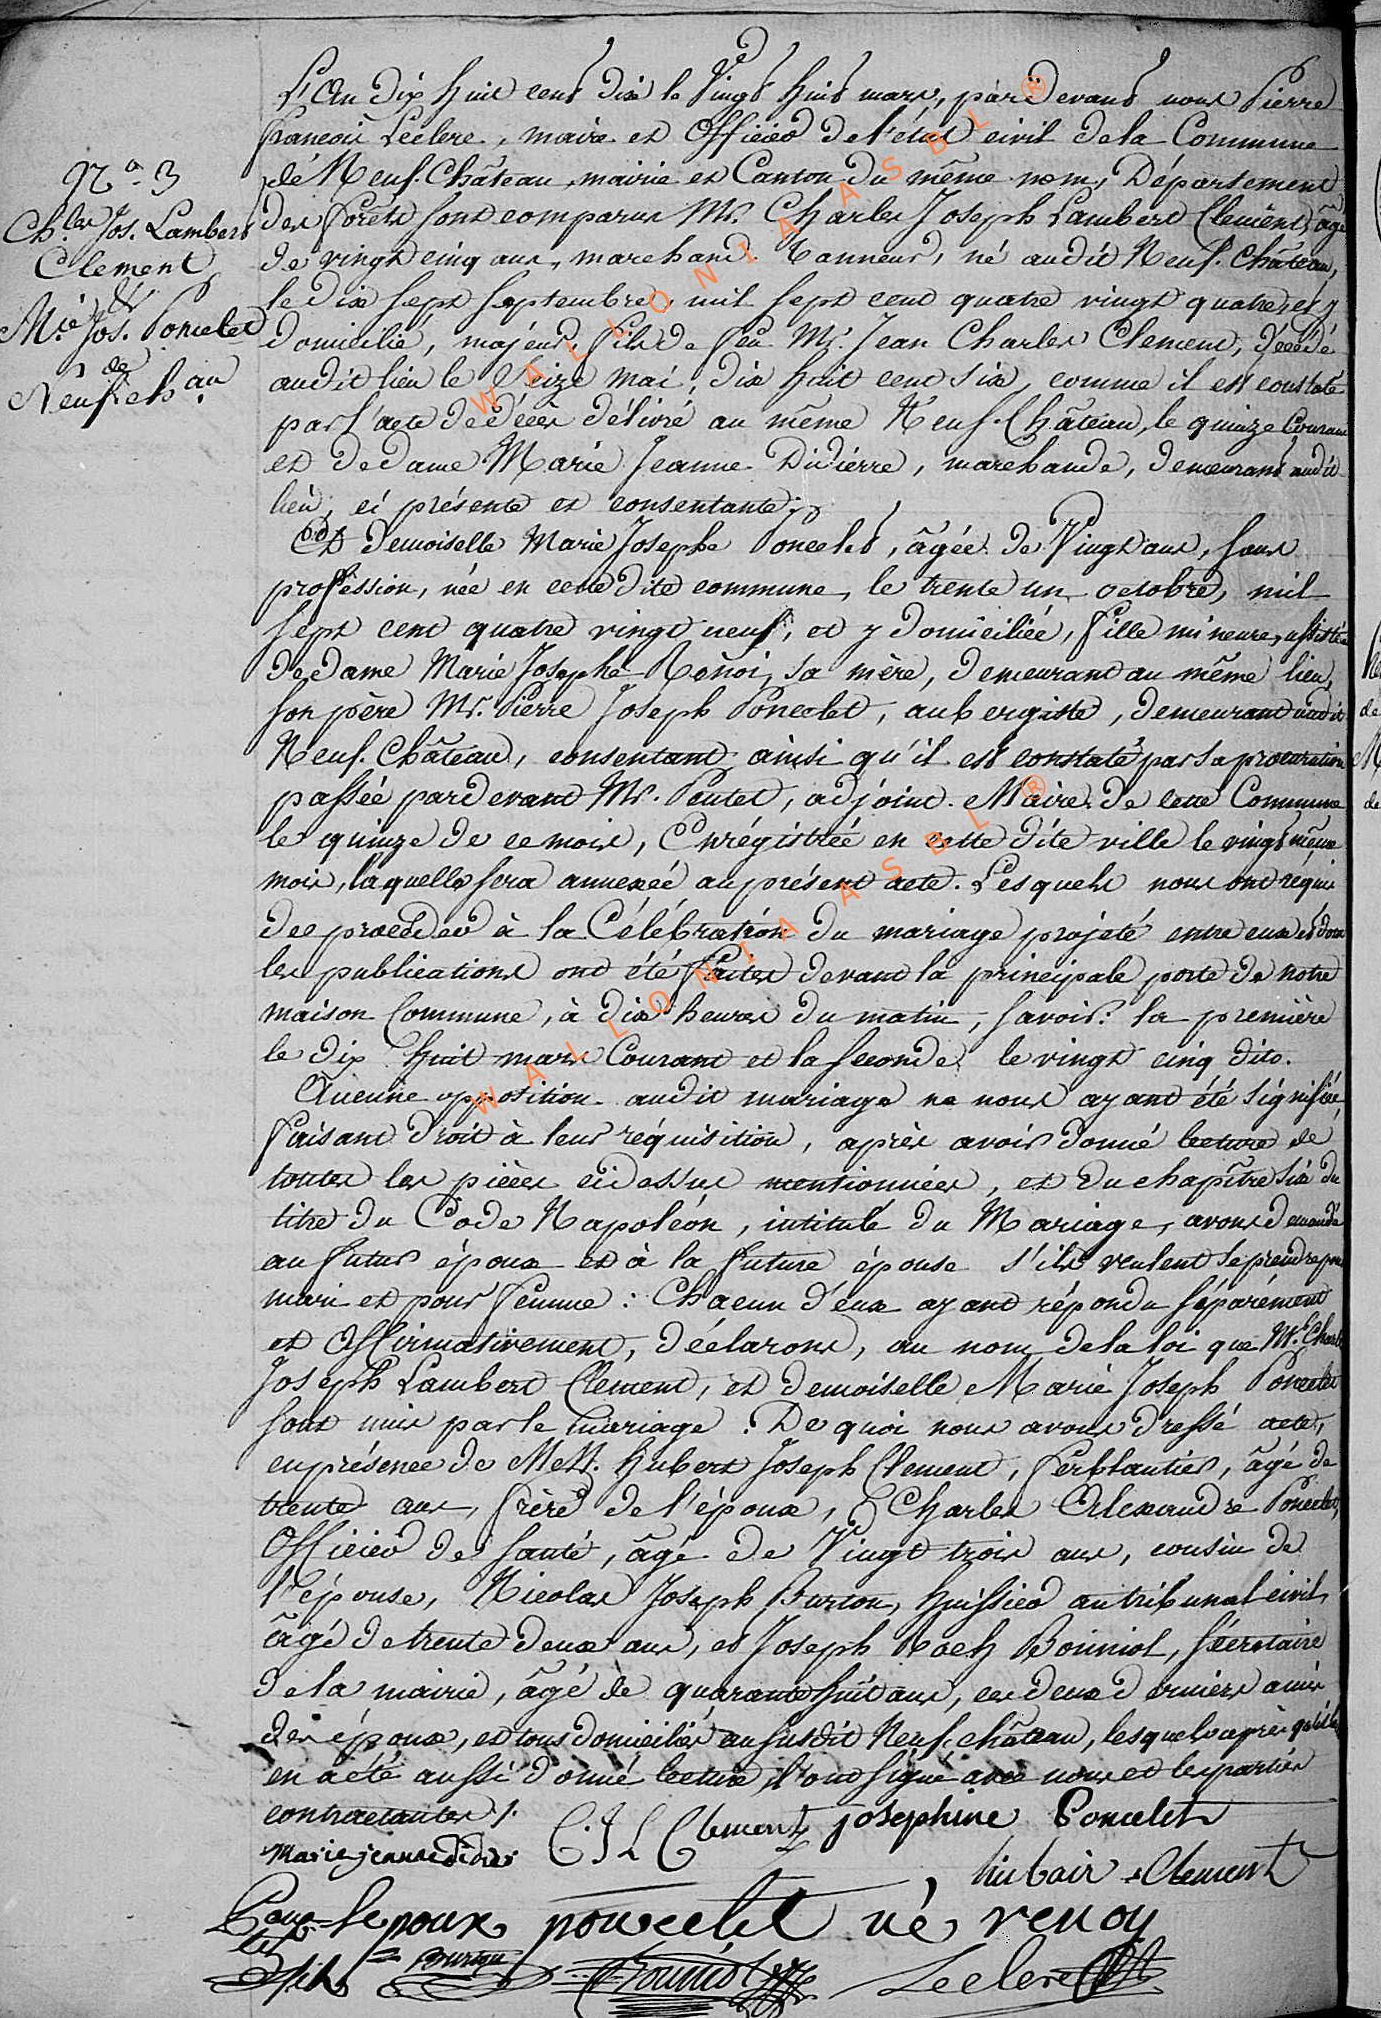 N.º 3
Ch.les Jos. Lambert
Clement
&
M.ie Jos. Poncelet
de
Neufchau.
L'An dix huit cent dix le Vingt huit mars, pardevant nous Pierre
François Leclere, maire et Officier de l'état civil de la Commune
de Neuf-Château, mairie et Canton du même nom, Département
des forêts sont comparus Mr. Charles Joseph Lambert Clement, âgé
de vingt cinq ans, marchand Tanneur, né audit Neuf-Château,
le dix sept septembre, mil sept cent quatre vingt quatre, et y
domicilié, majeur, fils de feu Mr. Jean Charles Clement, décédé
audit lieu le Seize mai, dix huit cent six, comme il est constaté
par l'acte de décès délivré au même Neuf-Château, le quinze Courant
et de dame Marie Jeanne Didierre, marchande, demeurant audit
lieu, ci présente et consentante;
Et demoiselle Marie Josephe Poncelet, âgée de Vingt ans, sans
profession, née en cette dite commune, le trente un octobre, mil
sept cent quatre vingt neuf, et y domiciliée, fille mineure, assistée
de dame Marie Josephe Rénoi, sa mère, demeurant au même lieu,
son père Mr. Pierre Joseph Poncelet, aubergiste, demeurant audit
Neuf-Château, consentant ainsi qu'il est constaté par sa procuration
passée pardevant Mr. Poutet, adjoint-Maire de cette Commune
le quinze de ce mois, Enrégistrée en cette dite ville le vingt même
mois, laquelle sera annexée au présent acte. Lesquels nous ont réquis
de procéder à la Célébration du mariage projeté entre eux et dont
les publications ont été faites devant la principale porte de notre
maison Commune, à dix heures du matin, savoir: la première
le dix huit mars Courant et la seconde le vingt cinq dito.
Aucune opposition audit mariage ne nous ayant été signifiée,
faisant droit à leur réquisition, après avoir donné lecture de
toutes les pièces cidessus mentionnées, et du chapître six du
titre du Code Napoléon, intitulé du Mariage, avons demandé
au futur époux et à la future épouse s'ils veulent se prendre pour
mari et pour femme: Chacun d'eux ayant répondu séparément
et affirmativement, déclarons, au nom de la loi que Mr. Charles
Joseph Lambert Clement, et demoiselle Marie Joseph Poncelet
sont unis par le mariage. De quoi nous avons dressé acte,
en présence de MeM. Hubert Joseph Clement, ferblantier, âgé de
trente ans, frère de l'époux, Charles Alexandre Poncelet,
Officier de santé, âgé de Vingt trois ans, cousin de
l'épouse, Nicolas Joseph Burton, huissier au tribunal civil,
âgé de trente deux ans, et Joseph Roch Bouniol, sécrétaire
de la mairie, âgé de quarante huit ans, ces deux derniers amis
des époux, et tous domiciliés au susdit Neuf-château, lesquels après qu'il
en a été aussi donné lecture, l'ont signé avec nous et les parties
contractantes ./.
C. J. L. Clement josephine Poncelet
Marie jenne didier
hubair Clement
poncelet né renoy
Burton Bouniol Leclere
WALLONIA ASBL ®
WALLONIA ASBL ®